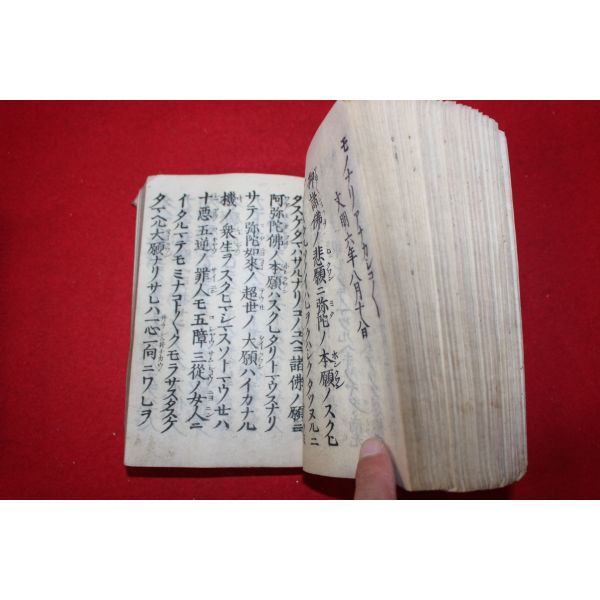 モノナリアナカシコ〱
文明六年八月十八日
抑諸佛ノ悲願ニ弥陀ノ本願ノスクレ
イハレヲクハシクタツヌルニ
タスケタマハサルナリコノユヘニ諸佛ノ願ニ
阿弥陀佛ノ本願ハスクレタリトマウスナリ
サテ弥陀如来ノ超世ノ大願ハイカナル
機ノ衆生ヲスクヒマシマスソトマウセハ
十悪五逆ノ罪人モ五障三從ノ女人ニ
イタルマテモミナコト〱クモラサスタスケ
タマヘル大願ナリサレハ一心一向ニワレヲ